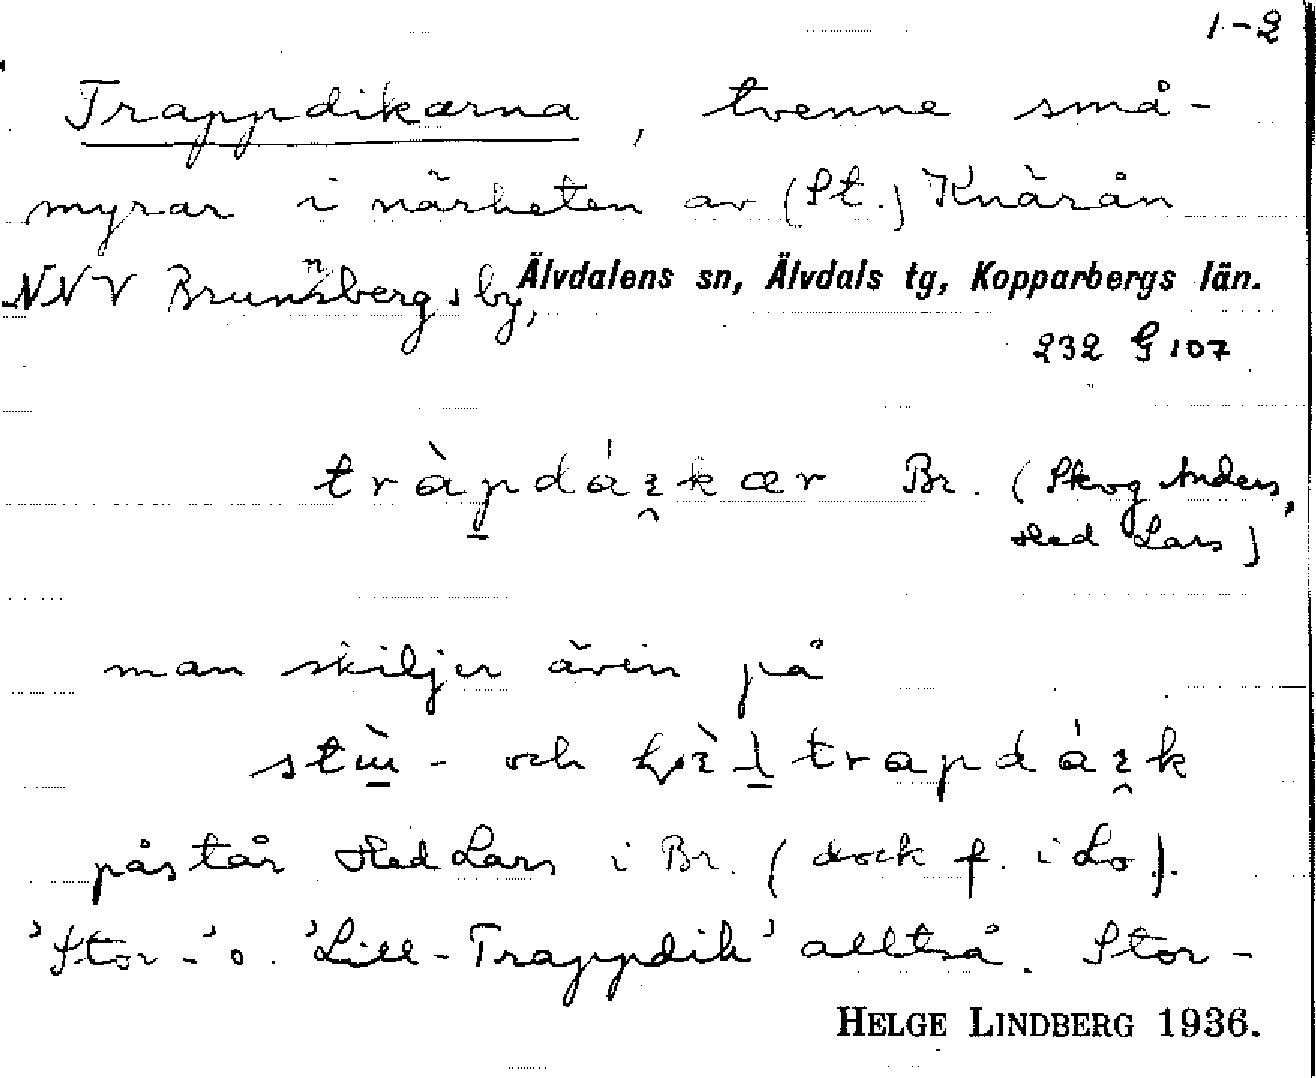 1-2
Trappdikarna, tvenne små-
myrar i närheten av (St.) Knärån
NNV Brunnsbergs by, Älvdalens sn, Älvdals tg, Kopparbergs län.
232 G 107
Br. (Skog Anders,
Hed Lars)
man skiljer även på
och
påstår Hed Lars i Br. (dock f. i Lo).
'Stor-' o. 'Lill-Trappdik' alltså. Stor-
HELGE LINDBERG 1936.